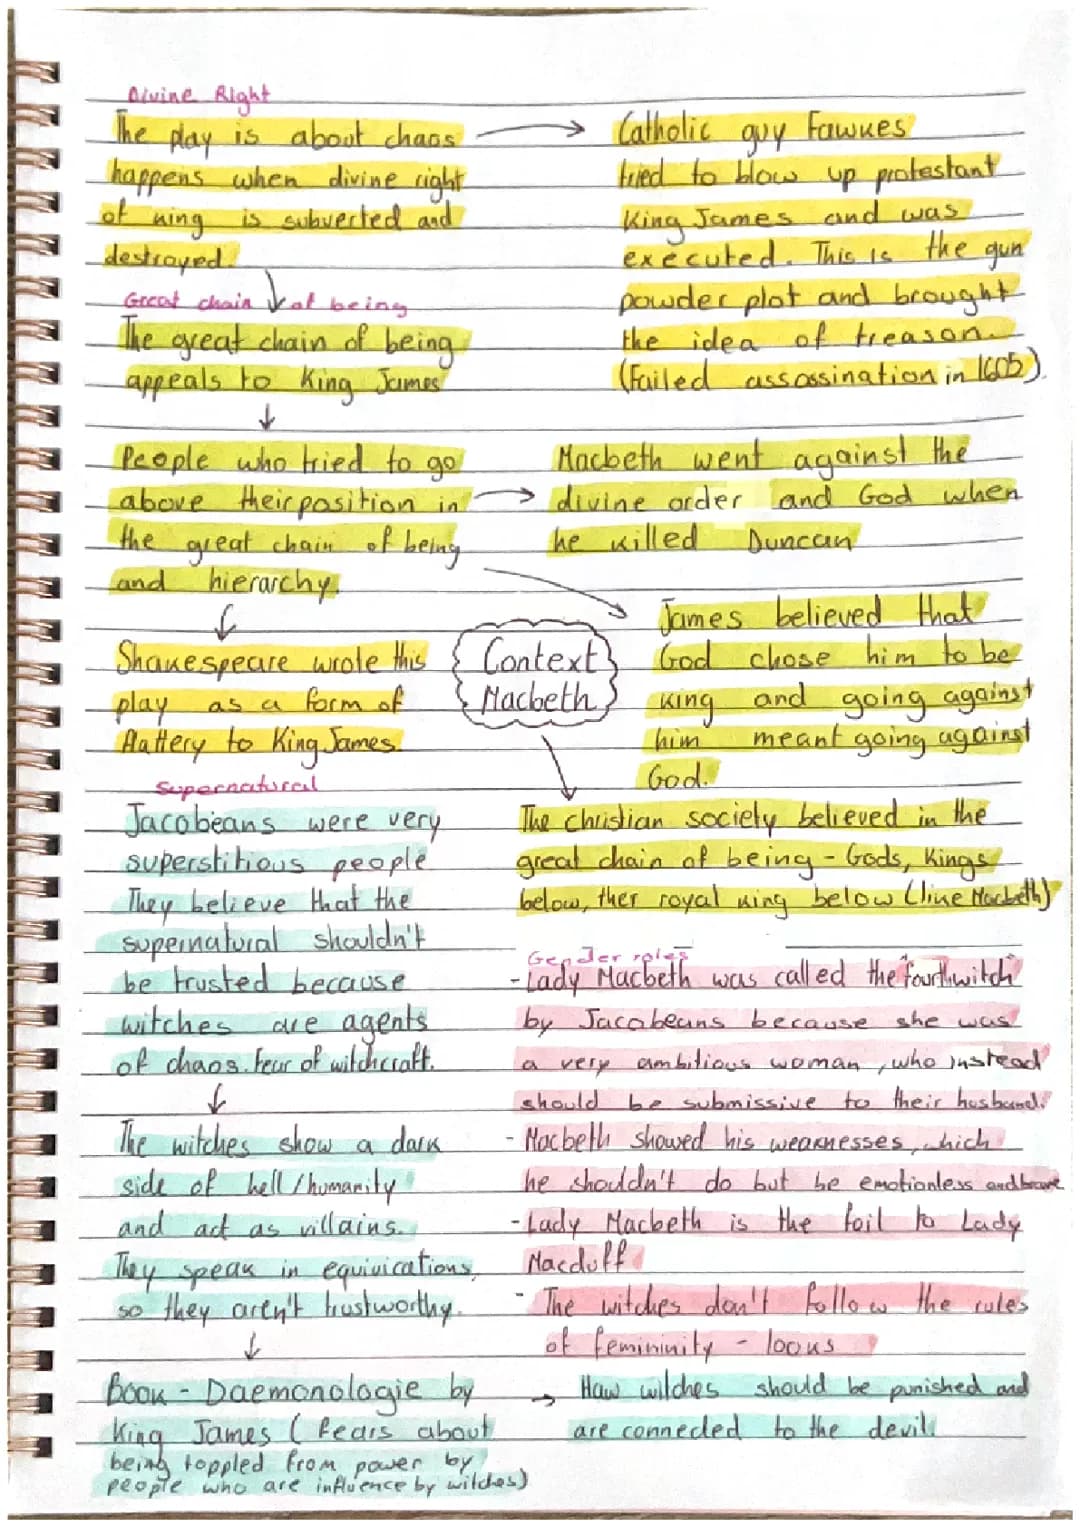 Divine Right
The play is about chaos
happens when divine right
of king is subverted and
destroyed.
Catholic guy Fawkes
tried to blow up protestant
King James and was
executed. This is the gun
powder plot and brought
the idea of treason.
(Failed assassination in 1605).
Great chain of being
The great chain of being
appeals to King James
People who tried to go
above their position in
the great chain of being
and hierarchy.
Macbeth went against the
divine order and God when
he killed Duncan
James believed that
God chose him to be
king and going against
him meant going against
God.
Shakespeare wrote this
play as a form of
flattery to King James.
Context
Macbeth
The christian society believed in the
great chain of being - Gods, Kings
below, ther royal king below (like Macbeth)
Supernatural
Jacobeans were very
superstitious people
They believe that the
supernatural shouldn't
be trusted because
witches are agents
of chaos. fear of witchcraft.
The witches show a dark
side of hell/humanity
and act as villains.
They speak in equivications,
so they aren't trustworthy.
Gender roles
- Lady Macbeth was called the "fourth witch"
by Jacobeans because she was
a very ambitious woman, who instead
should be submissive to their husband.
- Macbeth showed his weaknesses, which
he shouldn't do but be emotionless and brave
- Lady Macbeth is the foil to Lady
Macduff
- The witches don't follow the rules
of femininity - looks
Book - Daemonologie by
King James (fears about
being toppled from power by
people who are influence by witches)
How witches should be punished and
are conneded to the devil.